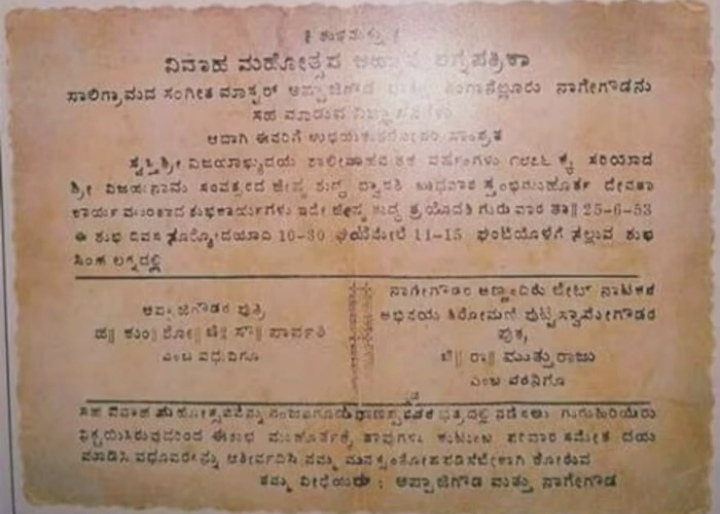 || ಶುಭಮಸ್ತು ||
ವಿವಾಹ ಮಹೋತ್ಸವ ಆಹ್ವಾನ ಲಗ್ನಪತ್ರಿಕಾ
ಸಾಲಿಗ್ರಾಮದ ಸಂಗೀತ ಮಾಸ್ಟರ್ ಅಪ್ಪಾಜಿಗೌಡ ನಾಗೇಗೌಡನು
ಸಹ ಮಾಡುವ ವಿಜ್ಞಾಪನೆಗಳು
ಅದಾಗಿ ಈವರಿಗೆ ಉಭಯಕುಶಲೋಪರಿ ಸಾಂಪ್ರತ
ಸ್ವಸ್ತಿಶ್ರೀ ವಿಜಯಾಭ್ಯುದಯ ಶಾಲೀವಾಹನ ಶಕ ವರ್ಷಂಗಳು ಕ್ಕೆ ಸರಿಯಾದ
ಶ್ರೀ ವಿಜಯನಾಮ ಸಂವತ್ಸರದ ಜೇಷ್ಠ ಶುದ್ಧ ದ್ವಾದಶಿ ಬುಧವಾರ ಸ್ತಂಭಮುಹೂರ್ತ ದೇವತಾ
ಕಾರ್ಯ ಮುಂತಾದ ಶುಭಕಾರ್ಯಗಳು ಇದೇ ಜೇಷ್ಠ ಶುದ್ಧ ತ್ರಯೋದಶಿ ಗುರುವಾರ ತಾ|| 25-6-53
ಈ ಶುಭ ದಿವಸ ಸೂರ್ಯೋದಯಾದಿ 10-30 ಘಂಟೆಮೇಲೆ 11-15 ಘಂಟೆಯೊಳಗೆ ಸಲ್ಲುವ ಶುಭ
ಸಿಂಹ ಲಗ್ನದಲ್ಲಿ
ಅಪ್ಪಾಜಿಗೌಡರ ಪುತ್ರಿ
ಚ|| ಕುಂ|| ಶೋ|| ಚಿ|| ಸೌ|| ಪಾರ್ವತಿ
ಎಂಬ ವಧುವಿಗೂ
ನಾಗೇಗೌಡರ ಅಣ್ಣಂದಿರು ಲೇಟ್ ನಾಟಕದ
ಅಭಿನಯ ಶಿರೋಮಣಿ ಪುಟ್ಟಸ್ವಾಮಿಗೌಡರ
ಪುತ್ರ,
ಚಿ|| ರಾ|| ಮುತ್ತುರಾಜು
ಎಂಬ ವರನಿಗೂ
ಸಹ ವಿವಾಹ ಮಹೋತ್ಸವವನ್ನು ನಂಜನಗೂಡು ಛತ್ರದಲ್ಲಿ ನಡೆಸಲು ಗುರುಹಿರಿಯರು
ನಿಶ್ಚಯಿಸಿರುವುದರಿಂದ ಈ ಶುಭ ಮುಹೂರ್ತಕ್ಕೆ ತಾವುಗಳು ಕುಟುಂಬ ಪರಿವಾರ ಸಮೇತ ದಯ
ಮಾಡಿಸಿ ವಧೂವರರನ್ನು ಆಶೀರ್ವದಿಸಿ ನಮ್ಮ ಮನಸ್ಸಂತೋಷಪಡಿಸಬೇಕಾಗಿ ಕೋರುವ
ತಮ್ಮ ವಿಧೇಯರು : ಅಪ್ಪಾಜಿಗೌಡ ಮತ್ತು ನಾಗೇಗೌಡ